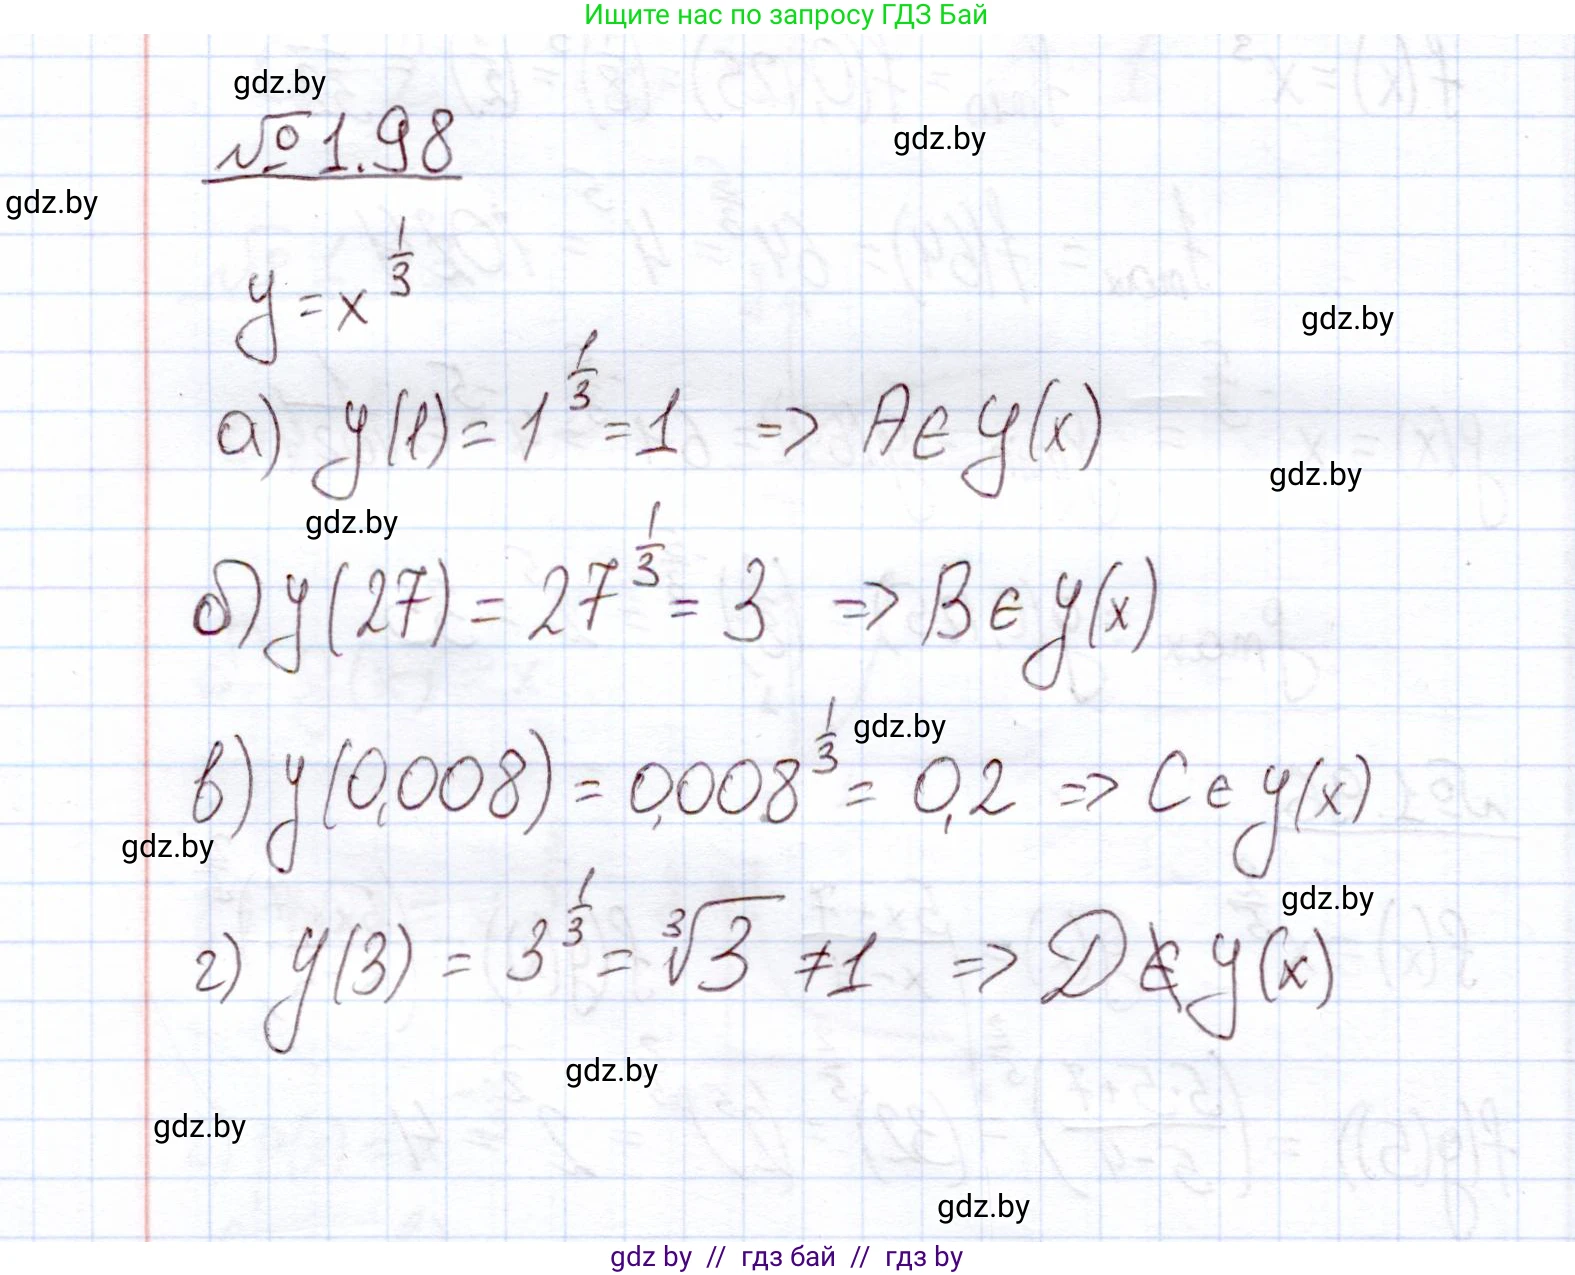 Ищите нас по запросу ГДЗ Бай
gdz.by
№1.98
gdz.by
gdz.by
y = x^{1/3}
gdz.by
а) y(1) = 1^{1/3} = 1 => A ∈ y(x)
gdz.by
gdz.by
б) y(27) = 27^{1/3} = 3 => B ∈ y(x)
gdz.by
в) y(0,008) = 0,008^{1/3} = 0,2 => C ∈ y(x)
gdz.by
gdz.by
г) y(3) = 3^{1/3} = ∛3 ≠ 1 => D ∉ y(x)
gdz.by
gdz.by
gdz.by
gdz by // гдз бай // гдз by